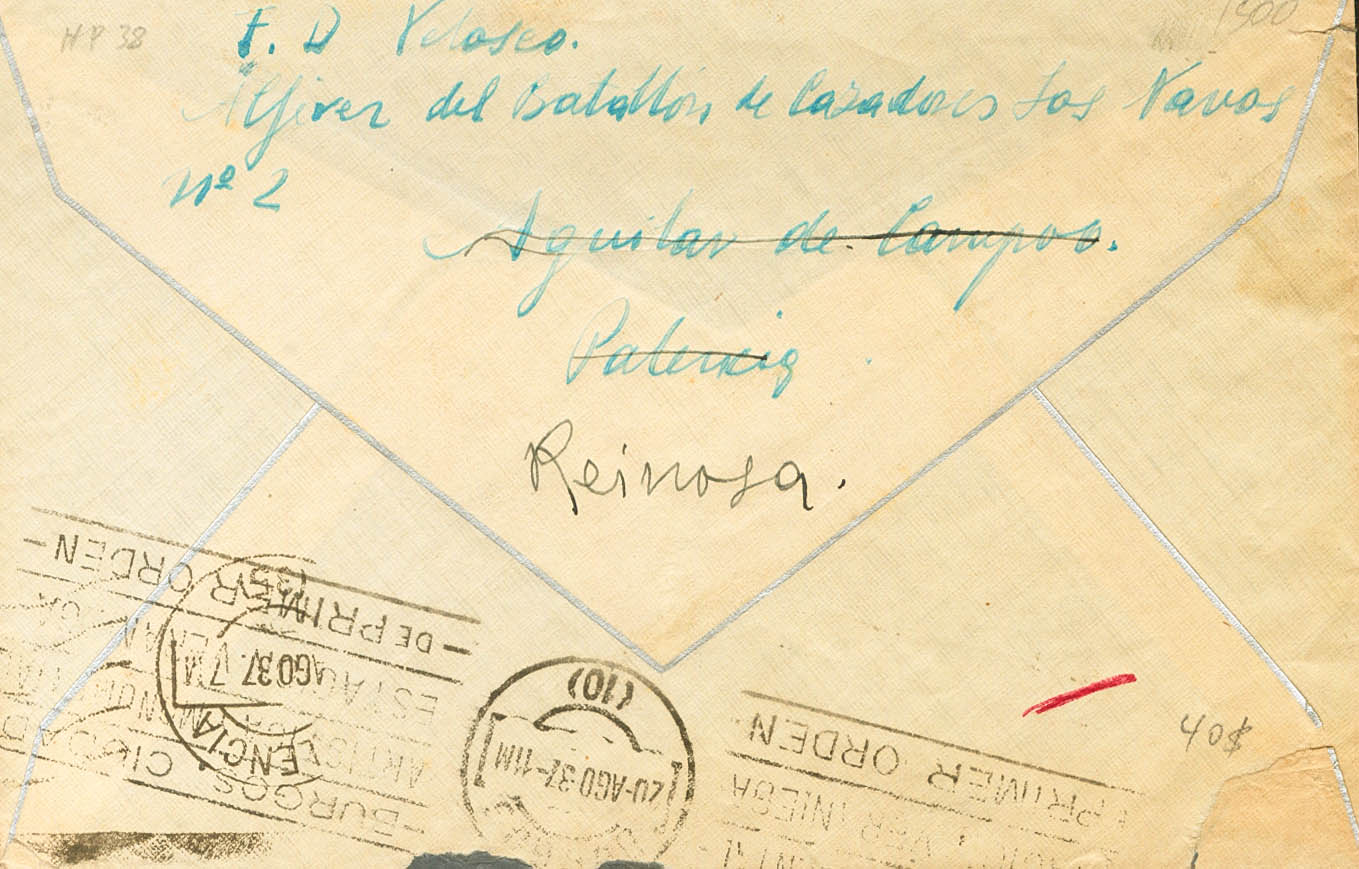 HP 38
1500
F. D Velasco.
Alferez del Batallón de Cazadores Las Navas
Nº 2
Aguilar de Campoo.
Palencia
Reinosa.
40$
(35)
AGO 37. 7M
(10)
20-AGO 37-11M
BURGOS CIUDAD
ESTACI VERAN
- DE PRIMER ORDEN -
PRIMER ORDEN